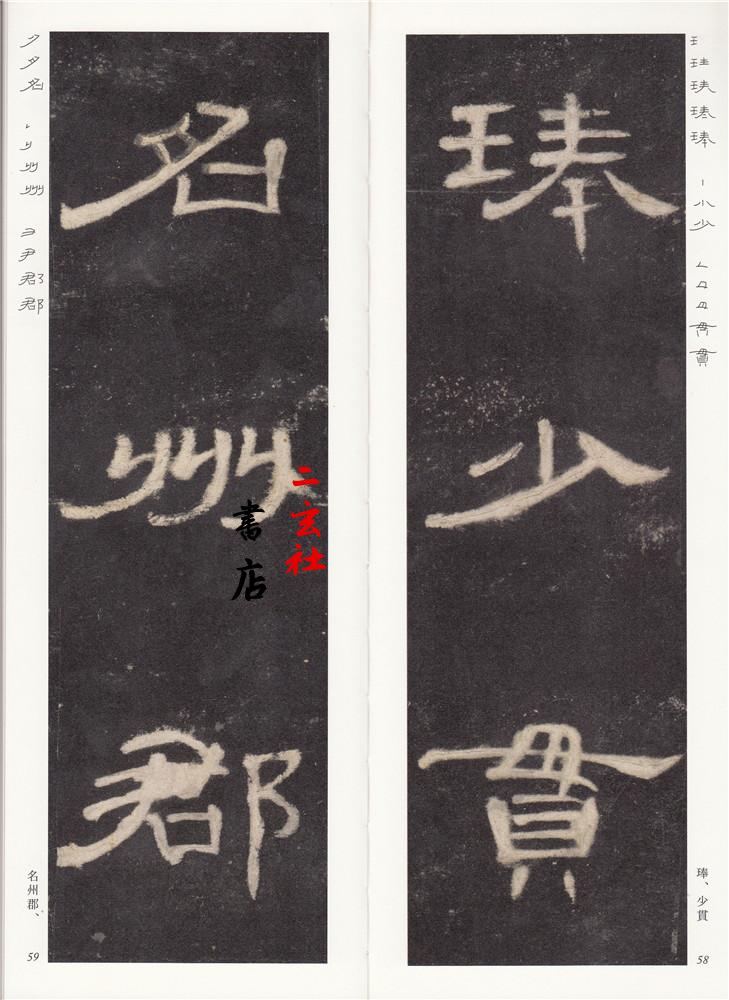 琫少貫
琫、少貫
58
名州郡
名州郡、
59
二玄社
書店